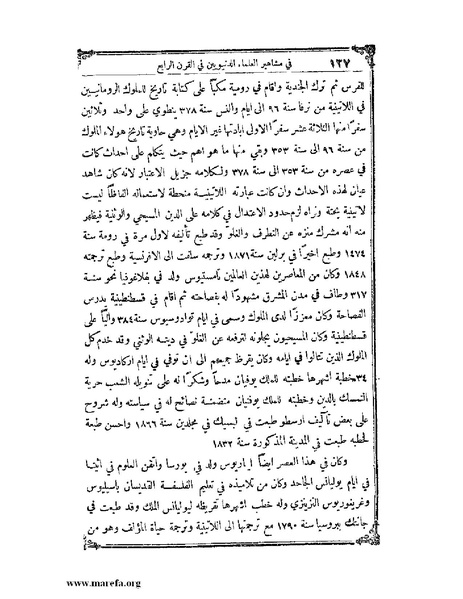 ١٢٧ في مشاهير العلماء الدنيويين في القرن الرابع
للفرس ثم ترك الجندية واقام في رومية مكبًا على كتابة تاريخ للملوك الرومانيين
في اللاتينية من نرفا سنة ٩٦ الى ايام والنس سنة ٣٧٨ ينطوي على واحد وثلاثين
سفرًا منها الثلاثة عشر سفرًا الاول ابادتها غير الايام وهي حاوية تاريخ هولاء الملوك
من سنة ٩٦ الى سنة ٣٥٣ وبقي منها ما هو اهم حيث يتكلم على احداث كانت
في عصره من سنة ٣٥٣ الى سنة ٣٧٨ ولكلامه جزيل الاعتبار لانه كان شاهد
عيان لهذه الاحداث وان كانت عبارته اللاتينية منحطة لاستعماله الفاظًا ليست
لاتينية بحتة ونراه لزم حدود الاعتدال في كلامه على الدين المسيحي والوثنية فيظهر
منه انه مشرك منزه عن التطرف والغلو وقد طبع تأليفه لاول مرة في رومة سنة
١٤٧٤ وطبع اخيرًا في برلين سنة ١٨٧١ وترجمه سافت الى الافرنسية وطبع ترجمته
١٨٤٨ وكان من المعاصرين لهذين العالمين تامستيوس ولد في بفلاغونيا نحو سنة
٣١٧ وطاف في مدن المشرق مشهودًا له بفصاحته ثم اقام في قسطنطينية يدرس
الفصاحة وكان معززًا لدى الملوك وسمي في ايام توادوسيوس سنة ٣٨٤ واليًا على
قسطنطينية وكان المسيحيون يجلونه لترفعه عن الغلو في دينه الوثني وقد خدم كل
الملوك الذين تتالوا في ايامه وكان يقرظ جميعهم الى ان توفي في ايام اركاديوس وله
٣٤ خطبة اشهرها خطبته للملك يوفيان مدحًا وشكرًا له على تنويله الشعب حرية
التمسك بالدين وخطبته للملك يوفنيان متضمنة نصائح له في سياسته وله شروح
على بعض تآليف ارسطو طبعت في لبسيك في مجلدين سنة ١٨٦٦ واحسن طبعة
لخطبه طبعت في المدينة المذكورة سنة ١٨٣٢
وكان في هذا العصر ايضًا اباريوس ولد في بورسا واتقن العلوم في اثينا
في ايام يوليانس الجاحد وكان من تلاميذه في تعليم الفلسفة القديسان باسيليوس
وغريغوريوس النزينزي وله خطب اشهرها تقريظه ليوليانس الملك وقد طبعت في
جاتنك ببروسيا سنة ١٧٩٠ مع ترجمتها الى اللاتينية وترجمة حياة المؤلف وهو من
www.marefa.org